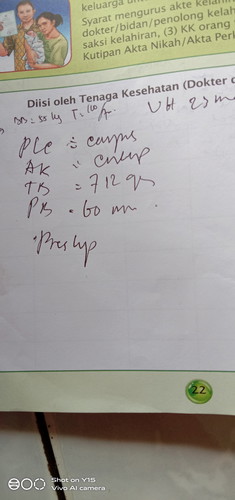 keluarga untu
Syarat mengurus akte kelahi
dokter/bidan/penolong kelah
saksi kelahiran, (3) KK orang
Kutipan Akta Nikah/Akta Perk
Diisi oleh Tenaga Kesehatan (Dokter
BB = 55 kg T =
UH 25 m
Plc = corpus
AK = cukup
TB = 712 gr
PB = 60 mm
Preskp
22
Shot on Y15
Vivo AI camera